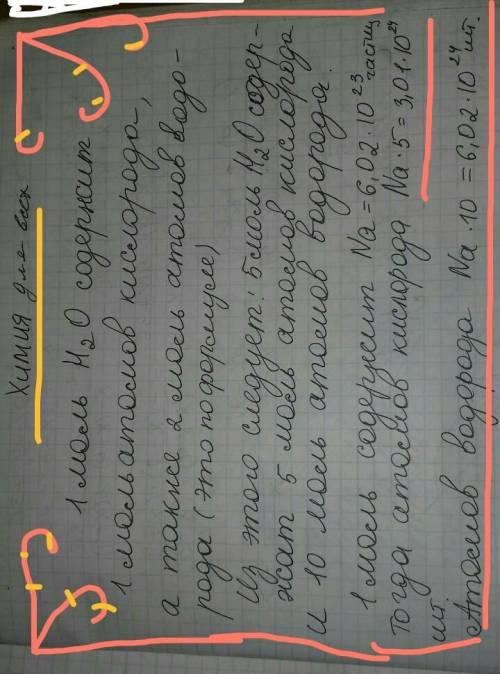 Химия для всех
1 моль H₂O содержит
1 моль атомов кислорода,
а также 2 моль атомов водо-
рода (это по формуле)
Из этого следует: 5 моль H₂O содер-
жат 5 моль атомов кислорода
и 10 моль атомов водорода.
1 моль содержит Na = 6,02·10²³ частиц
Тогда атомов кислорода Na·5 = 3,01·10²⁴
шт.
Атомов водорода Na·10 = 6,02·10²⁴ шт.